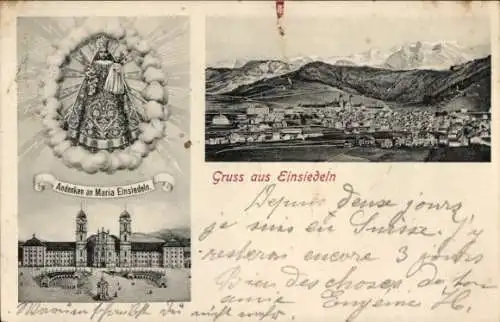 Andenken an Maria Einsiedeln.
Gruss aus Einsiedeln
Depuis deux jours
je suis en Suisse. J'y
resterai encore 3 jours
Bien des choses de ton
amie Eugenie H.
Warum schreibst Du
nicht mehr.